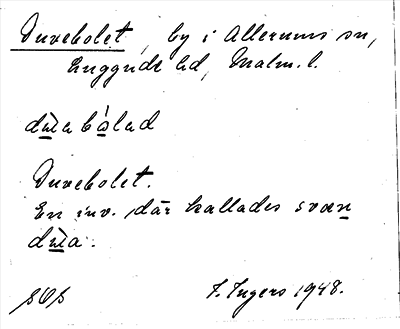 Duvebolet, by i Allerums sn,
Luggude hd, Malm. l.
dùabòlad
Duvebolet.
En inv. där kallades svæn
dùa.
I. Ingers 1948.